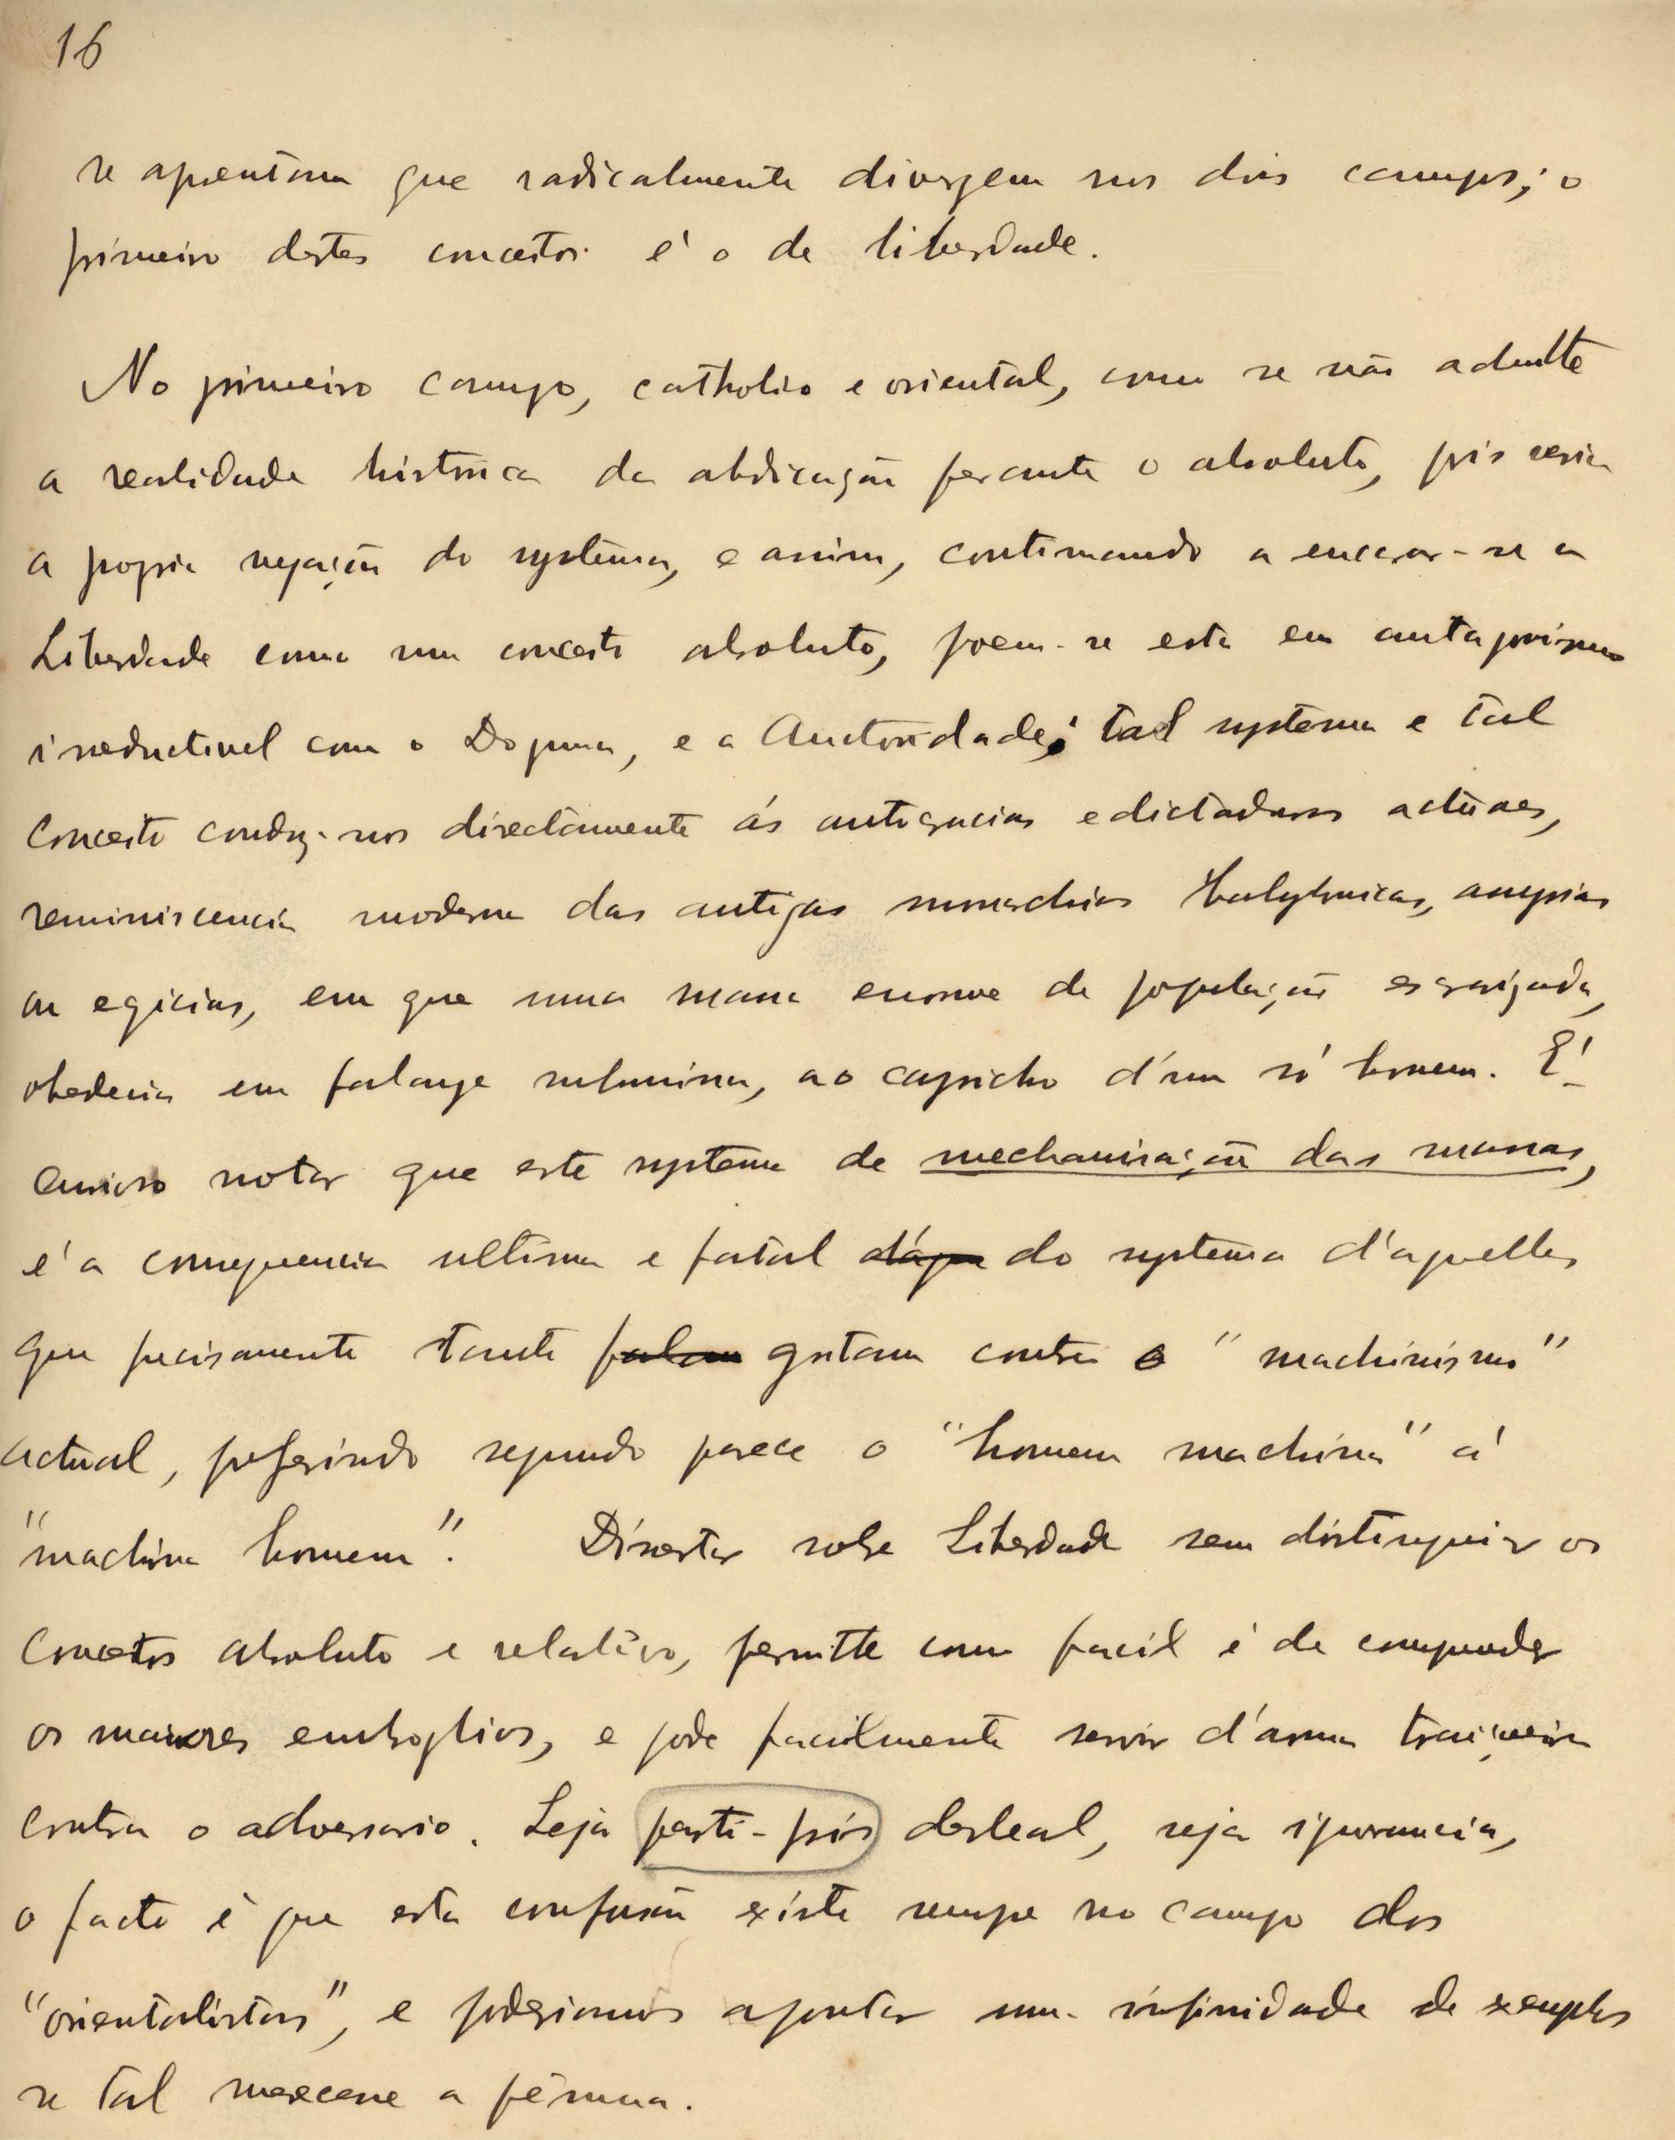 16
se apresentam que radicalmente divergem nos dois campos; o
primeiro destes conceitos é o de liberdade.
No primeiro campo, catholico e oriental, como se não admitte
a realidade historica da abdicação perante o absoluto, pois seria
a propria negação do systema, e assim, continuando a encarar-se a
Liberdade como um conceito absoluto, poem-se esta em antagonismo
irreductivel com o Dogma, e a Auctoridade; tal systema e tal
conceito conduz-nos directamente ás autocracias e dictaduras actuaes,
reminiscencia moderna das antigas monarchias babylonicas, assyrias
ou egicias, em que uma massa enorme de população escravizada,
obedecia em falange submissa, ao capricho d'um só homem. É
curioso notar que este systema de mechanisação das massas,
é a consequencia ultima e fatal do systema d'aquelles
que precisamente tanto falam gritam contra o "machinismo"
actual, preferindo segundo parece o "homem machina" á
"machina homem". Dissertar sobre Liberdade sem distinguir os
conceitos absoluto e relativo, permitte como facil é de comprender
os maiores embroglios, e pode facilmente servir d'arma traiçoeira
contra o adversario. Seja parti-pris desleal, seja ignorancia,
o facto é que esta confusão existe sempre no campo dos
"orientalistas", e poderiamos apontar uma infinidade de exemplos
se tal merecesse a pênna.